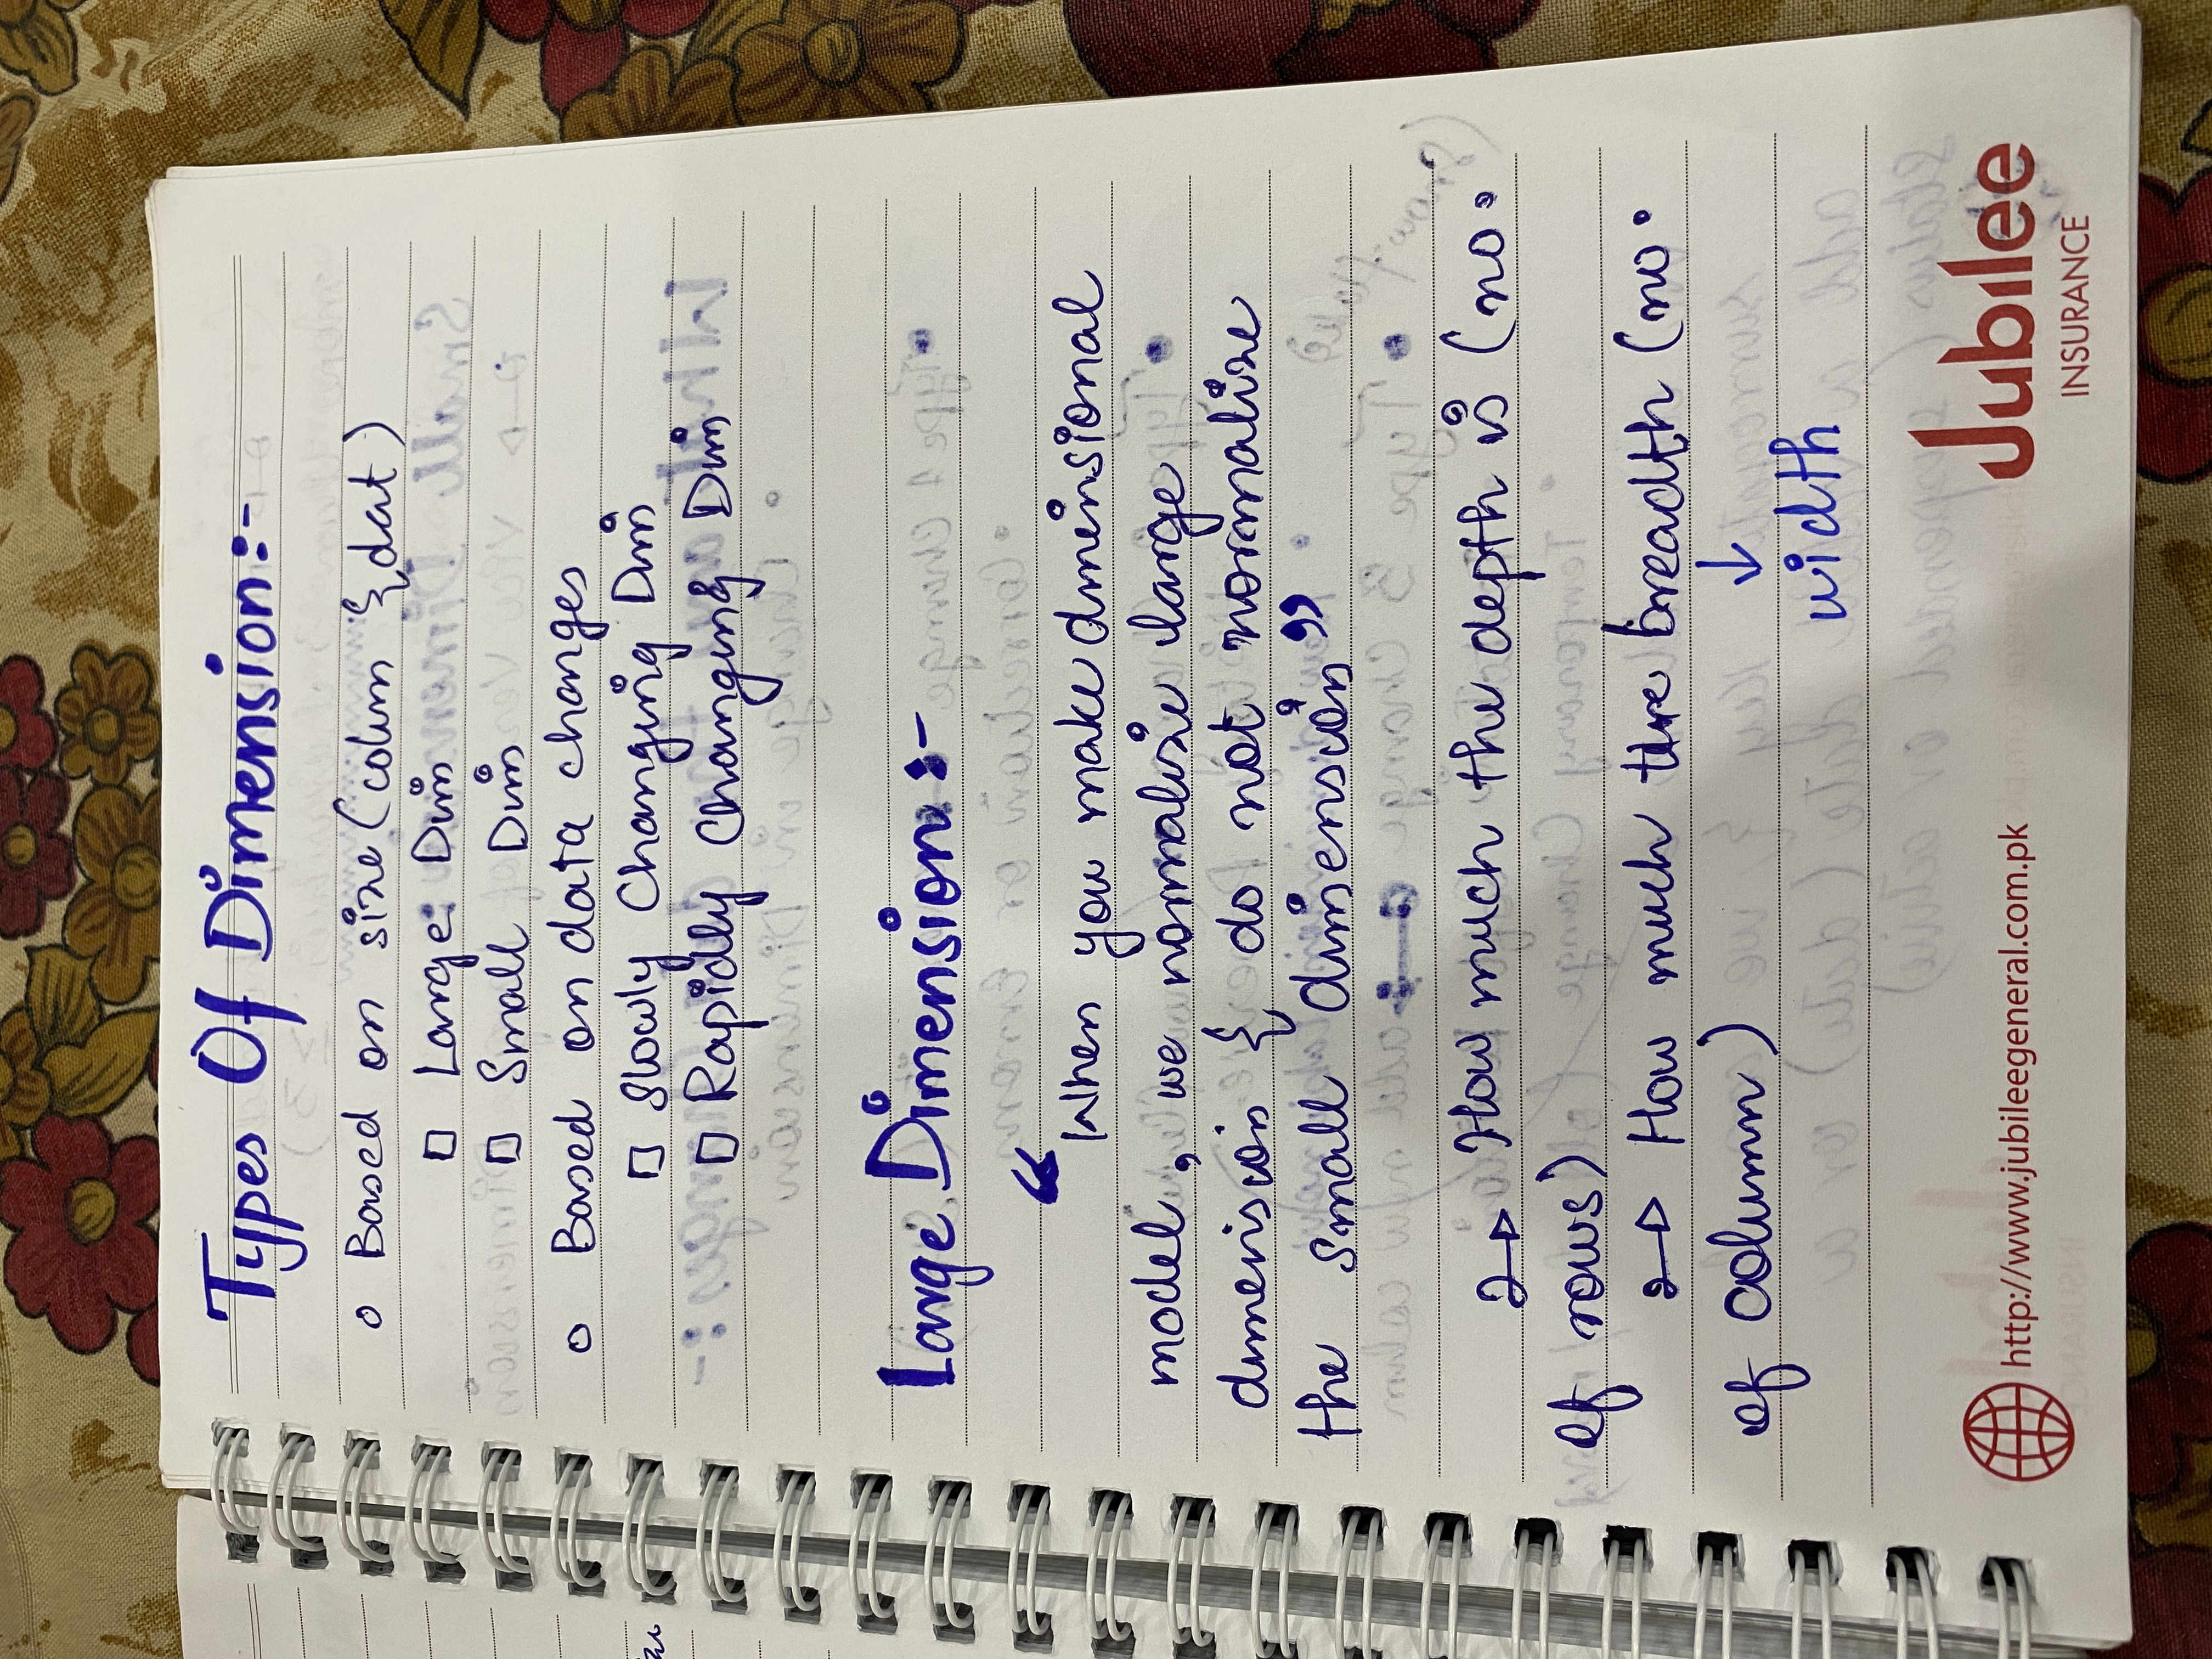 Types Of Dimension:-
o Based on size (colum & dat)
□ Large Dim
□ Small Dim
o Based on data changes
□ Slowly Changing Dim
□ Rapidly Changing Dim
Large Dimension:-
“When you make dimensional
model, we normalize large
dimension & do not normalize
the small dimension”
→ How much the depth is (no.
of rows)
→ How much the breadth (no.
of column)
↓
width
http://www.jubileegeneral.com.pk
Jubilee
INSURANCE